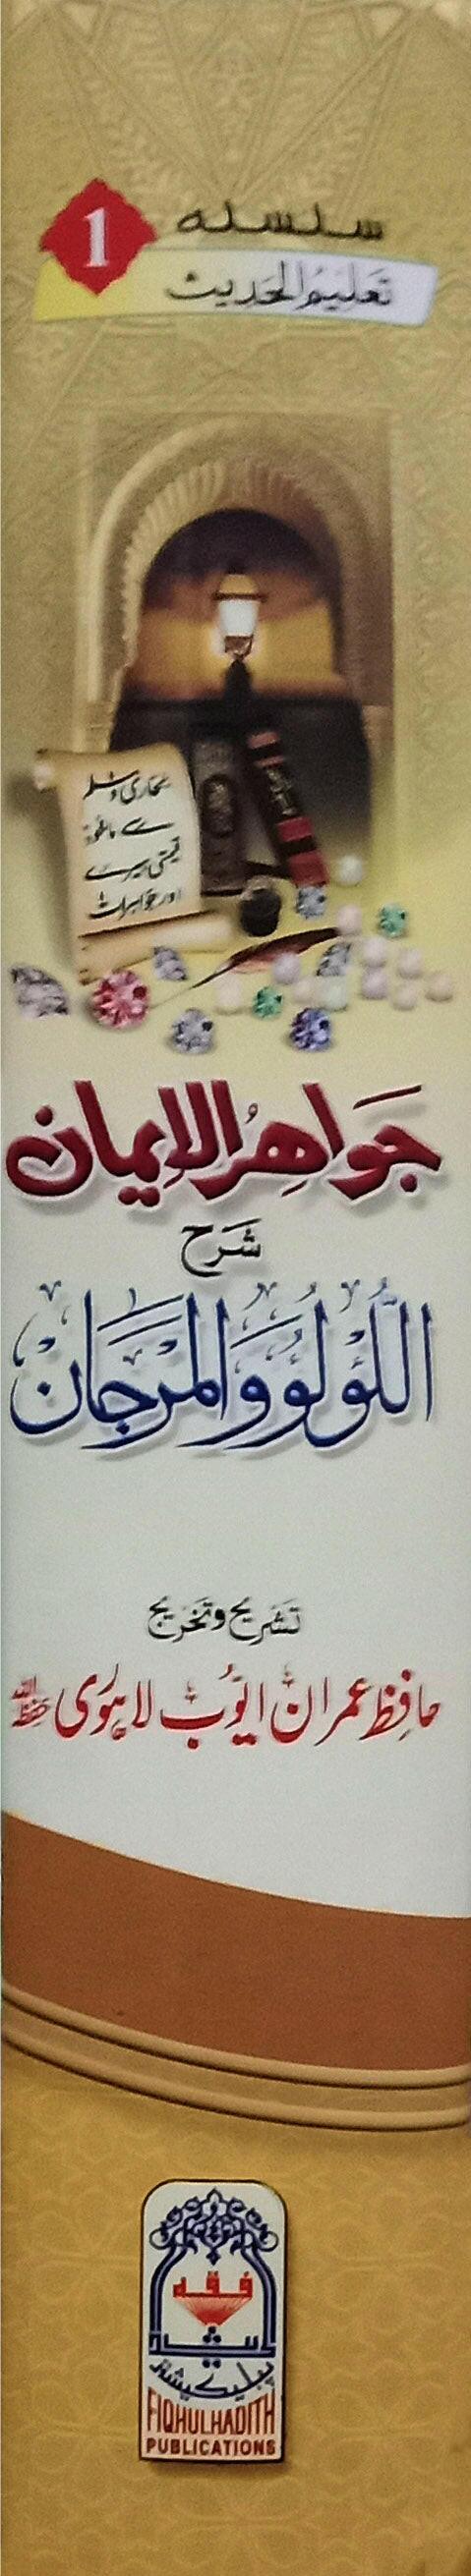 سلسلہ
1
تعلیم الحدیث
بخاری و مسلم
سے ماخوذ
قیمتی ہیرے
اور جواہرات
جواهر الایمان
شرح
اللؤلؤ والمرجان
تشریح و تخریج
حافظ عمران ایوب لاہوری حفظہ اللہ
فقه
الحدیث
پبلیکیشنز
FIQHULHADITH
PUBLICATIONS